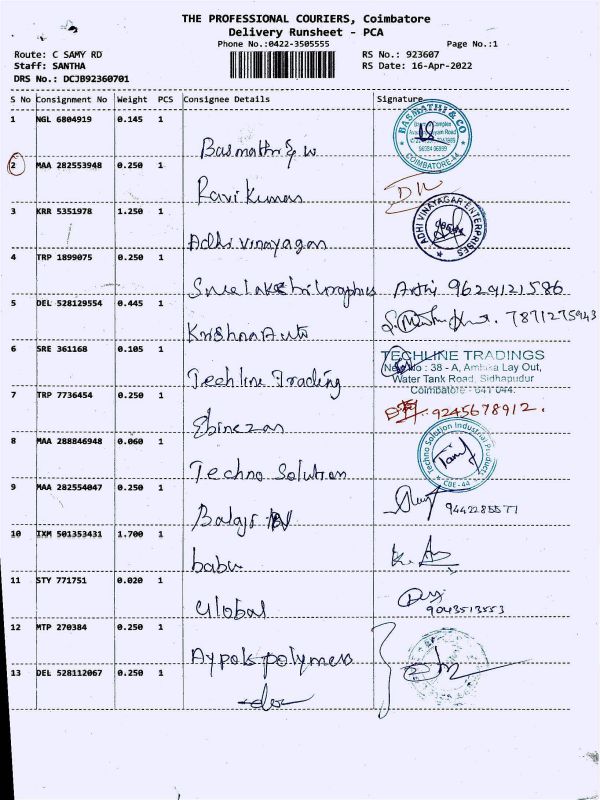 THE PROFESSIONAL COURIERS, Coimbatore
Delivery Runsheet - PCA
Phone No.:0422-3505555
Page No.:1
Route: C SAMY RD
Staff: SANTHA
DRS No.: DCJB92360701
RS No.: 923607
RS Date: 16-Apr-2022
S No Consignment No Weight PCS Consignee Details Signature
1 NGL 6804919 0.145 1
BASMATHI & CO
COIMBATORE-44
Basmathi &
2 MAA 282553948 0.250 1
Ravi Kumar
3 KRR 5351978 1.250 1
ADHI VINAYAGAR ENTERPRISES
Adhi vinayagan
4 TRP 1899075 0.250 1
9629121586
5 DEL 528129554 0.445 1
Krishna Auto
7871275943
6 SRE 361168 0.105 1
TECHLINE TRADINGS
New No : 38 - A, Ambika Lay Out,
Water Tank Road, Sidhapudur
Coimbatore - 641 044.
Techline Trading
7 TRP 7736454 0.250 1
9245678912.
Ebinezar
8 MAA 288846948 0.060 1
Techno Solution Industrial Products
CBE-44
Techno Solution
9 MAA 282554047 0.250 1
Balaji
9442285577
10 IXM 501353431 1.700 1
babu
11 STY 771751 0.020 1
Global
9043513553
12 MTP 270384 0.250 1
Aypols polymers
13 DEL 528112067 0.250 1
-do-